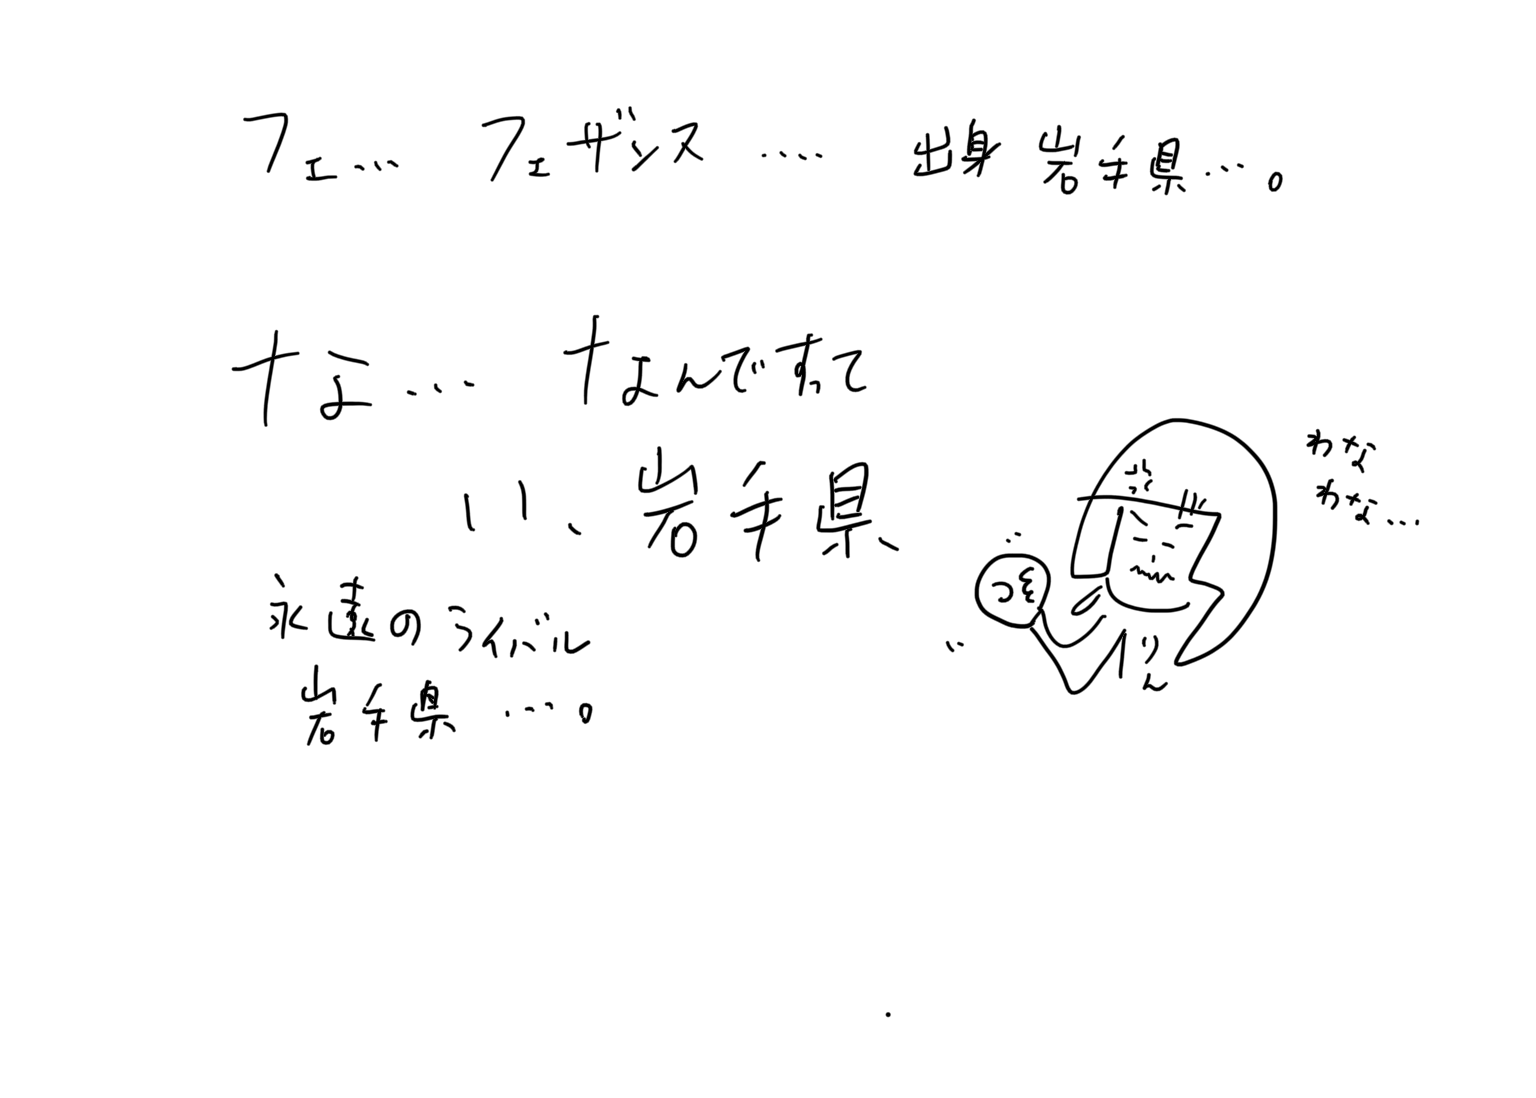 フェ… フェザンス…. 出身 岩手県…。
なよ… なんですって
い、岩手県、
永遠のライバル
岩手県…。
わな
わな…
りん